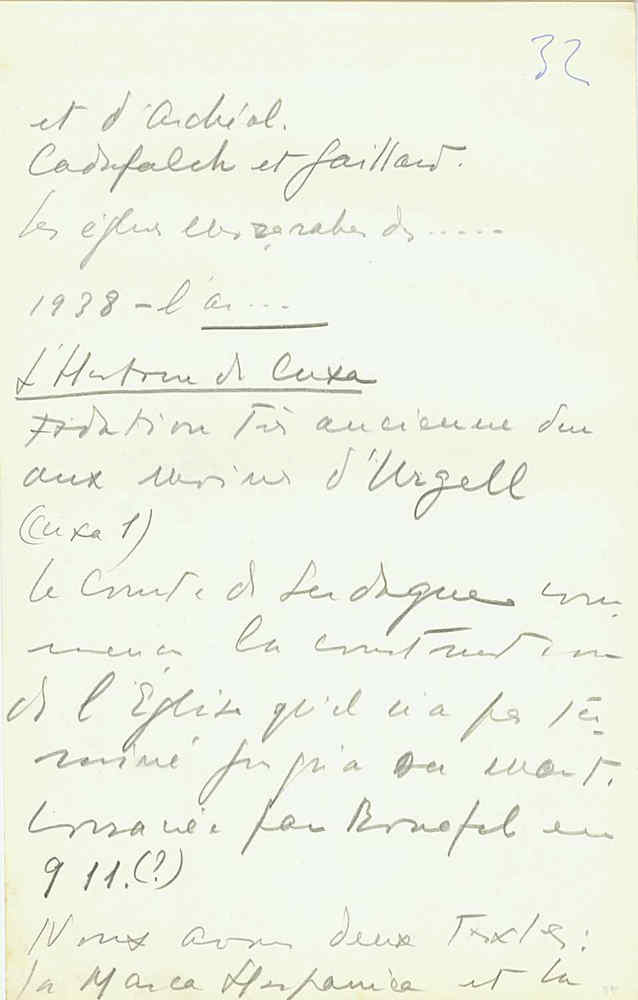 32
et d'Archéol.
Cadafalch et Gaillard.
les églises mozarabes de .....
1938 - l'a ....
L'Histoire de Cuxa
Fondation très ancienne due
aux moines d'Urgell
(Cuxa 1)
le Comte de Serdagne com
mença la construction
de l'Église qu'il n'a pas ter-
miné jusqu'a sa mort.
par en
911.(?)
Nous avons deux textes:
la Marca Hispanica et la